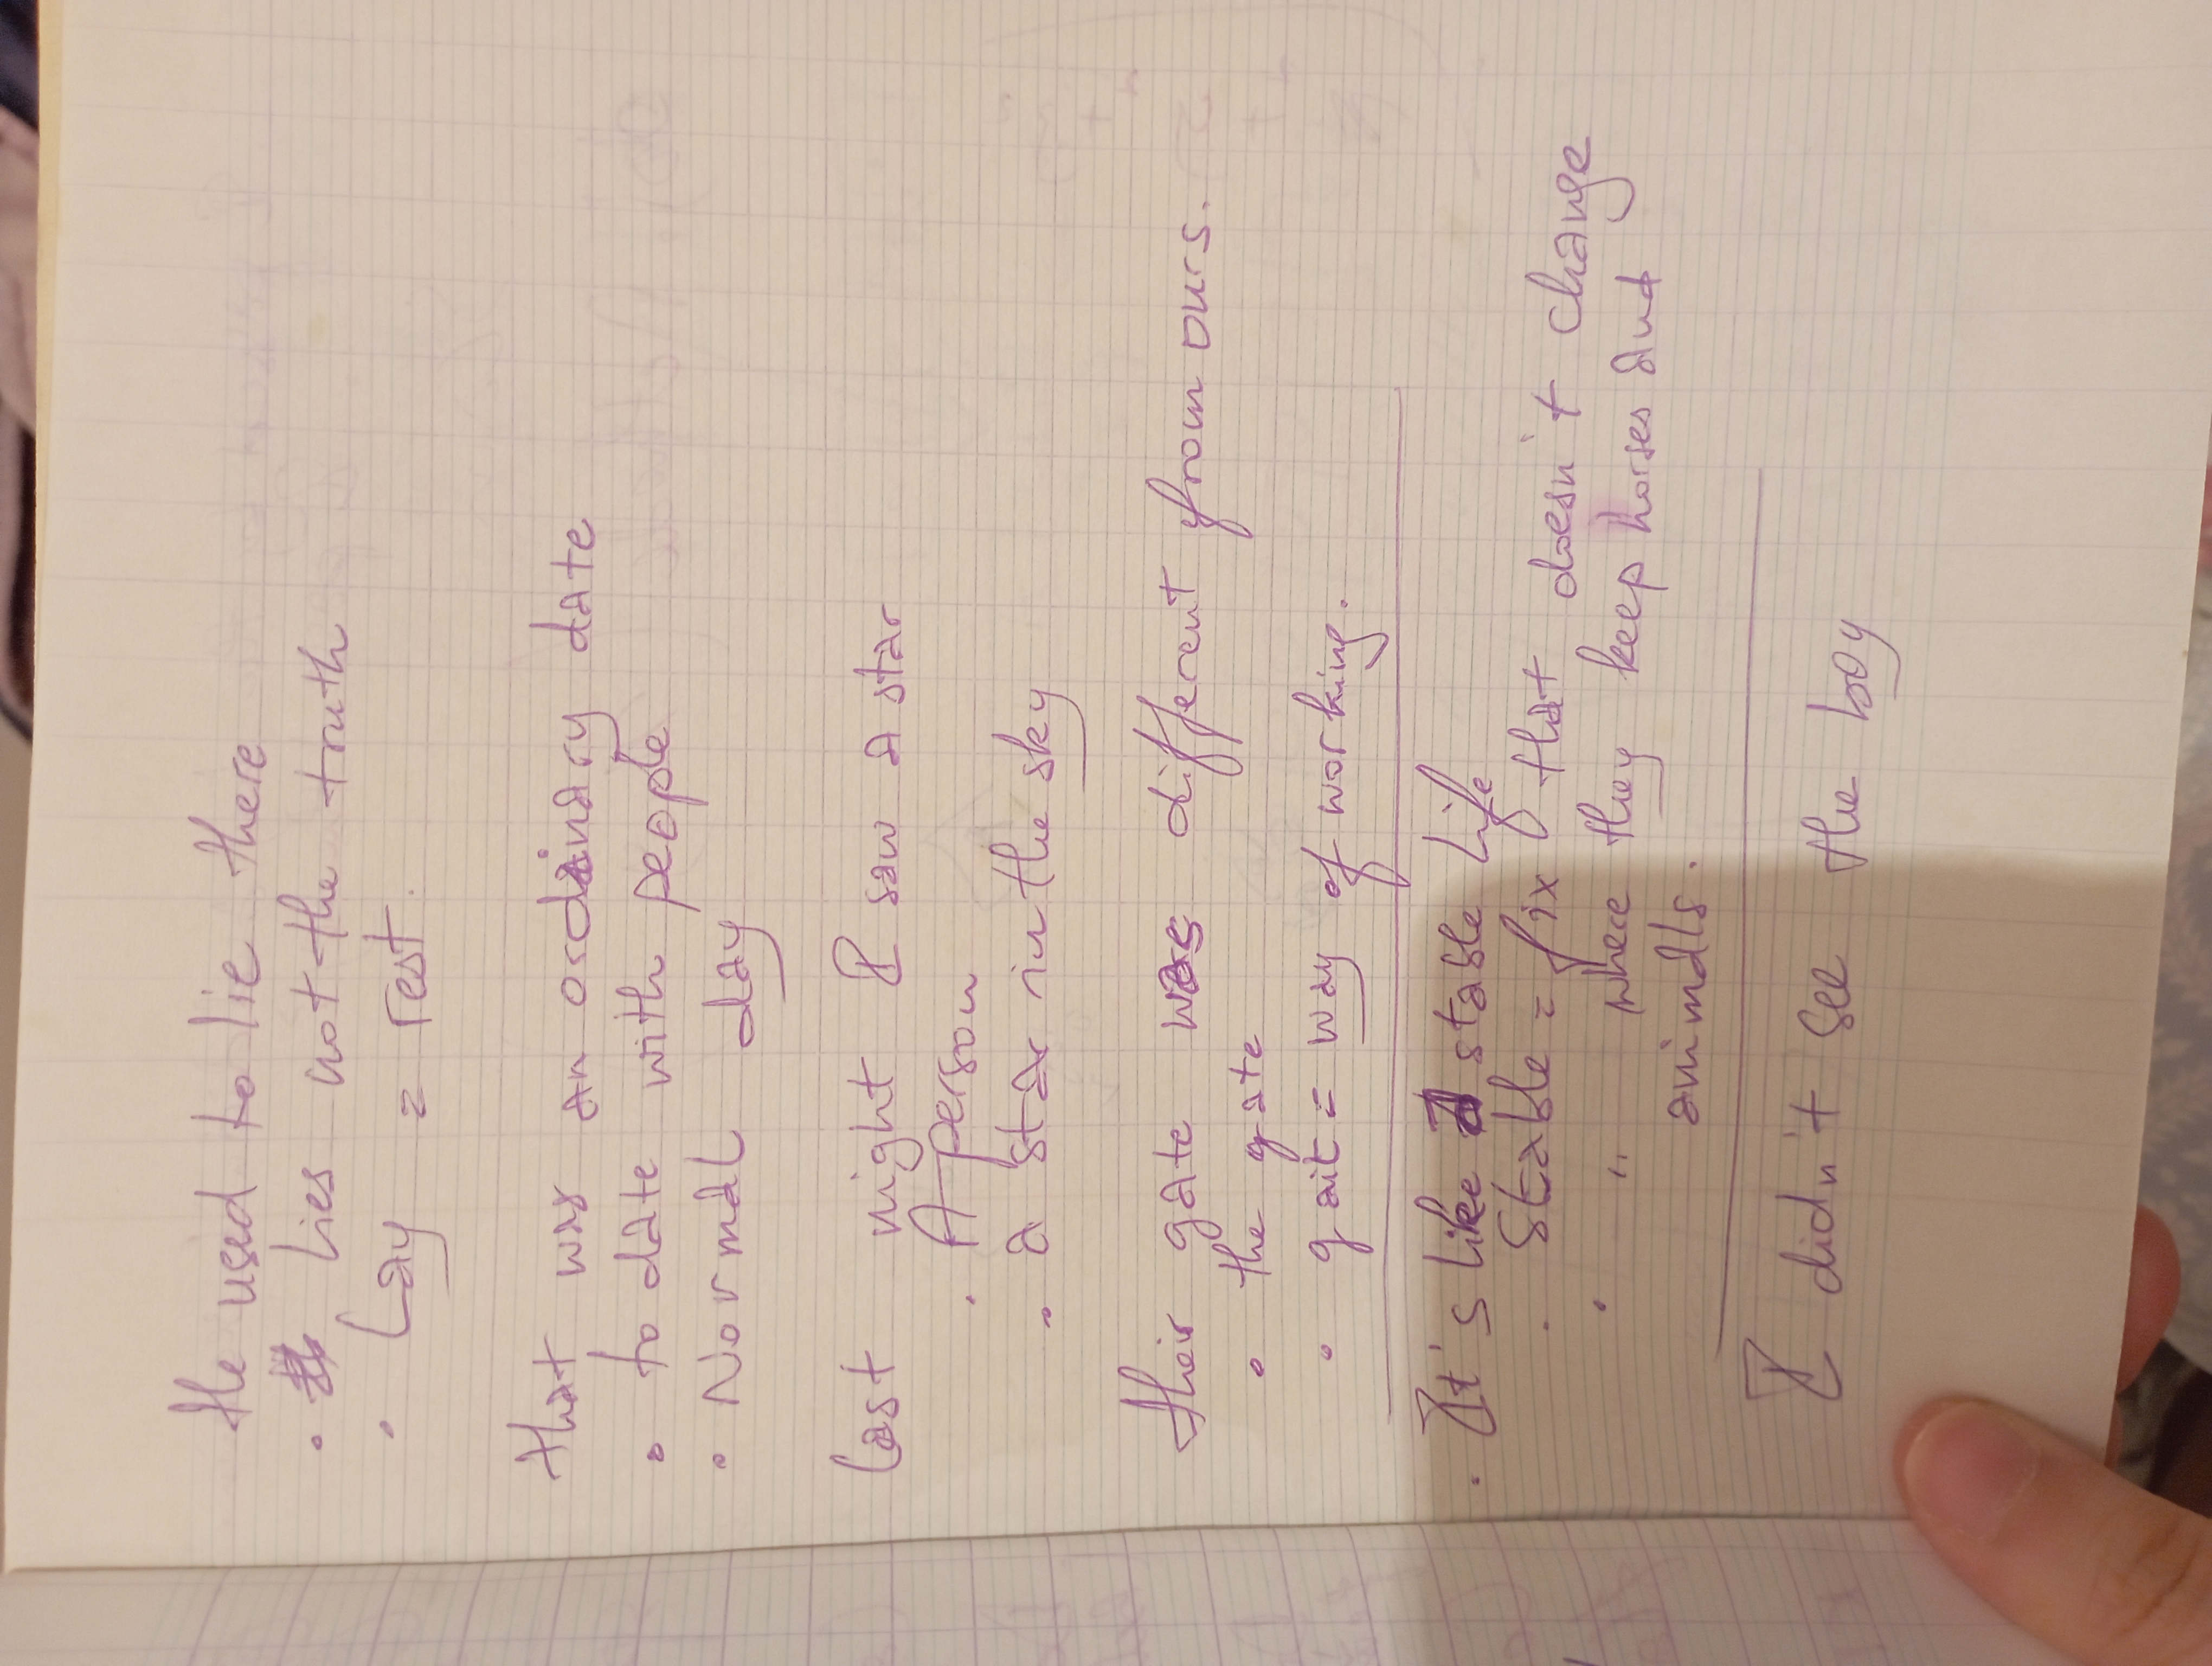 He used to lie there
• Lies not the truth
• Lay = rest.
that was an ordinary date
• to date with people
• Normal day
Last night I saw a star
• A person
• a star in the sky
their gate was different from ours.
• the gate
• gait = way of working.
• It's like a stable life
• Stable = fix that doesn't change
• " where they keep horses and
animals.
I didn't see the boy